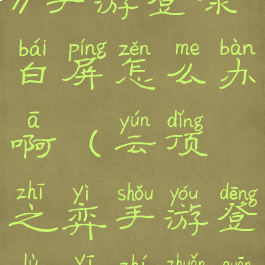 手游登录
bái píng zěn me bàn
白屏怎么办
ā yún dǐng
啊（云顶
zhī yì shǒu yóu dēng
之弈手游登